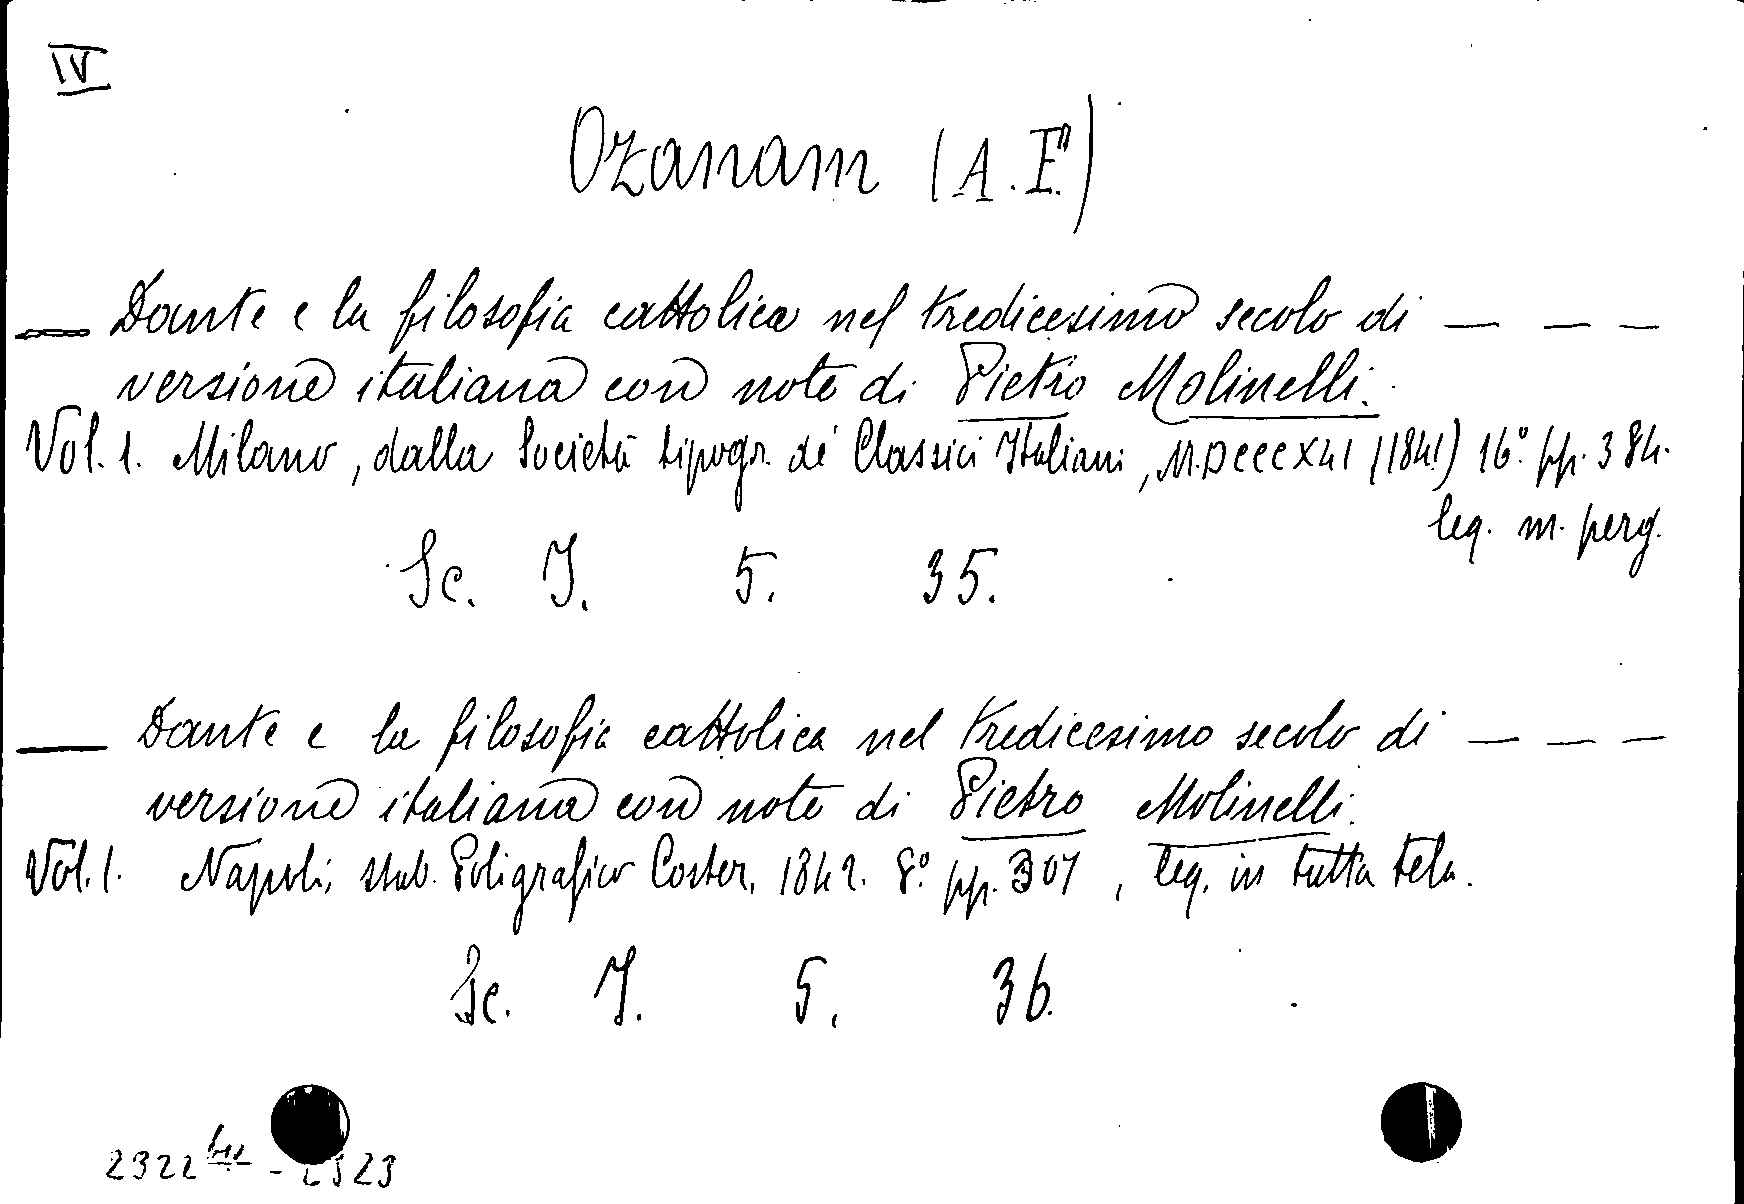 IV
Ozanam (A. F.)
— Dante e la filosofia cattolica nel tredicesimo secolo di — — —
versione italiana con note di Pietro Molinelli.
Vol. 1. Milano, dalla Società tipogr. de' Classici Italiani, M.DCCCXLI (1841) 16° pp. 384.
leg. m. perg.
Sc. I. 5. 35.
— Dante e la filosofia cattolica nel tredicesimo secolo di — — —
versione italiana con note di Pietro Molinelli.
Vol. 1. Napoli, stab. Poligrafico Coster, 1842. 8° pp. 307, leg. in tutta tela.
Sc. I. 5. 36.
2322 bis - 2323